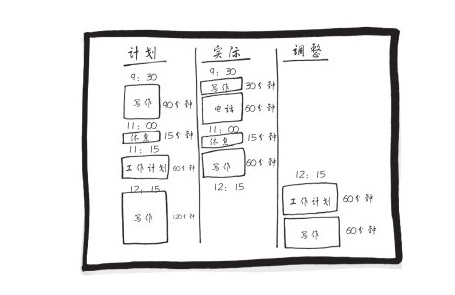 计划
9:30
写作
90分钟
11:00
休息
15分钟
11:15
工作计划
60分钟
12:15
写作
120分钟
实际
9:30
写作
30分钟
电话
60分钟
11:00
休息
15分钟
写作
60分钟
12:15
调整
12:15
工作计划
60分钟
写作
60分钟